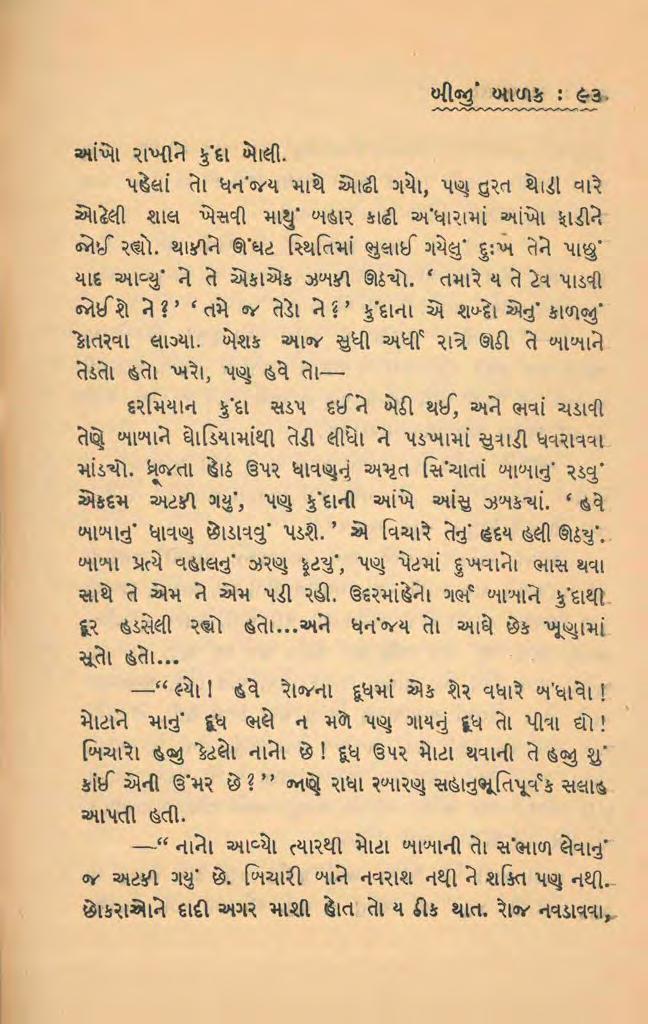 બીજું બાળક : ૯૩
આંખો રાખીને કુંદા બોલી.
પહેલાં તો ધનંજય માથે ઓઢી ગયો, પણ તુરત થોડી વારે
ઓઢેલી શાલ ખેસવી માથું બહાર કાઢી અંધારામાં આંખો ફાડીને
જોઈ રહ્યો. થાકીને ઊંઘટ સ્થિતિમાં ભુલાઈ ગયેલું દુઃખ તેને પાછું
યાદ આવ્યું ને તે એકાએક ઝબકી ઊઠ્યો. ‘તમારે ય તે ટેવ પાડવી
જોઈશે ને?’ ‘તમે જ તેડો ને?’ કુંદાના એ શબ્દો એનું કાળજું
કોતરવા લાગ્યા. બેશક આજ સુધી અર્ધી રાત્રે ઊઠી તે બાબાને
તેડતો હતો ખરો, પણ હવે તો—
દરમિયાન કુંદા સડપ દઈને બેઠી થઈ, અને ભવાં ચડાવી
તેણે બાબાને ઘોડિયામાંથી તેડી લીધો ને પડખામાં સુવાડી ધવરાવવા
માંડ્યો. ધ્રૂજતા હોઠ ઉપર ધાવણનું અમૃત સિંચાતાં બાબાનું રડવું
એકદમ અટકી ગયું, પણ કુંદાની આંખે આંસુ ઝબક્યાં. ‘હવે
બાબાનું ધાવણ છોડાવવું પડશે.’ એ વિચારે તેનું હૃદય હલી ઊઠ્યું.
બાબા પ્રત્યે વહાલનું ઝરણ ફૂટ્યું, પણ પેટમાં દુખવાનો ભાસ થવા
સાથે તે એમ ને એમ પડી રહી. ઉદરમાંહેનો ગર્ભ બાબાને કુંદાથી
દૂર હડસેલી રહ્યો હતો...અને ધનંજય તો આઘે છેક ખૂણામાં
સૂતો હતો...
—“લ્યો! હવે રોજના દૂધમાં એક શેર વધારે બંધાવો!
મોટાને માનું દૂધ ભલે ન મળે પણ ગાયનું દૂધ તો પીવા દ્યો!
બિચારો હજુ કેટલો નાનો છે! દૂધ ઉપર મોટા થવાની તે હજી શું
કાંઈ એની ઉંમર છે?” જાણે રાધા રબારણ સહાનુભૂતિપૂર્વક સલાહ
આપતી હતી.
—“નાનો આવ્યો ત્યારથી મોટા બાબાની તો સંભાળ લેવાનું
જ અટકી ગયું છે. બિચારી બાને નવરાશ નથી ને શક્તિ પણ નથી.
છોકરાઓને દાદી અગર માશી હોત તો ય ઠીક થાત. રોજ નવડાવવા,